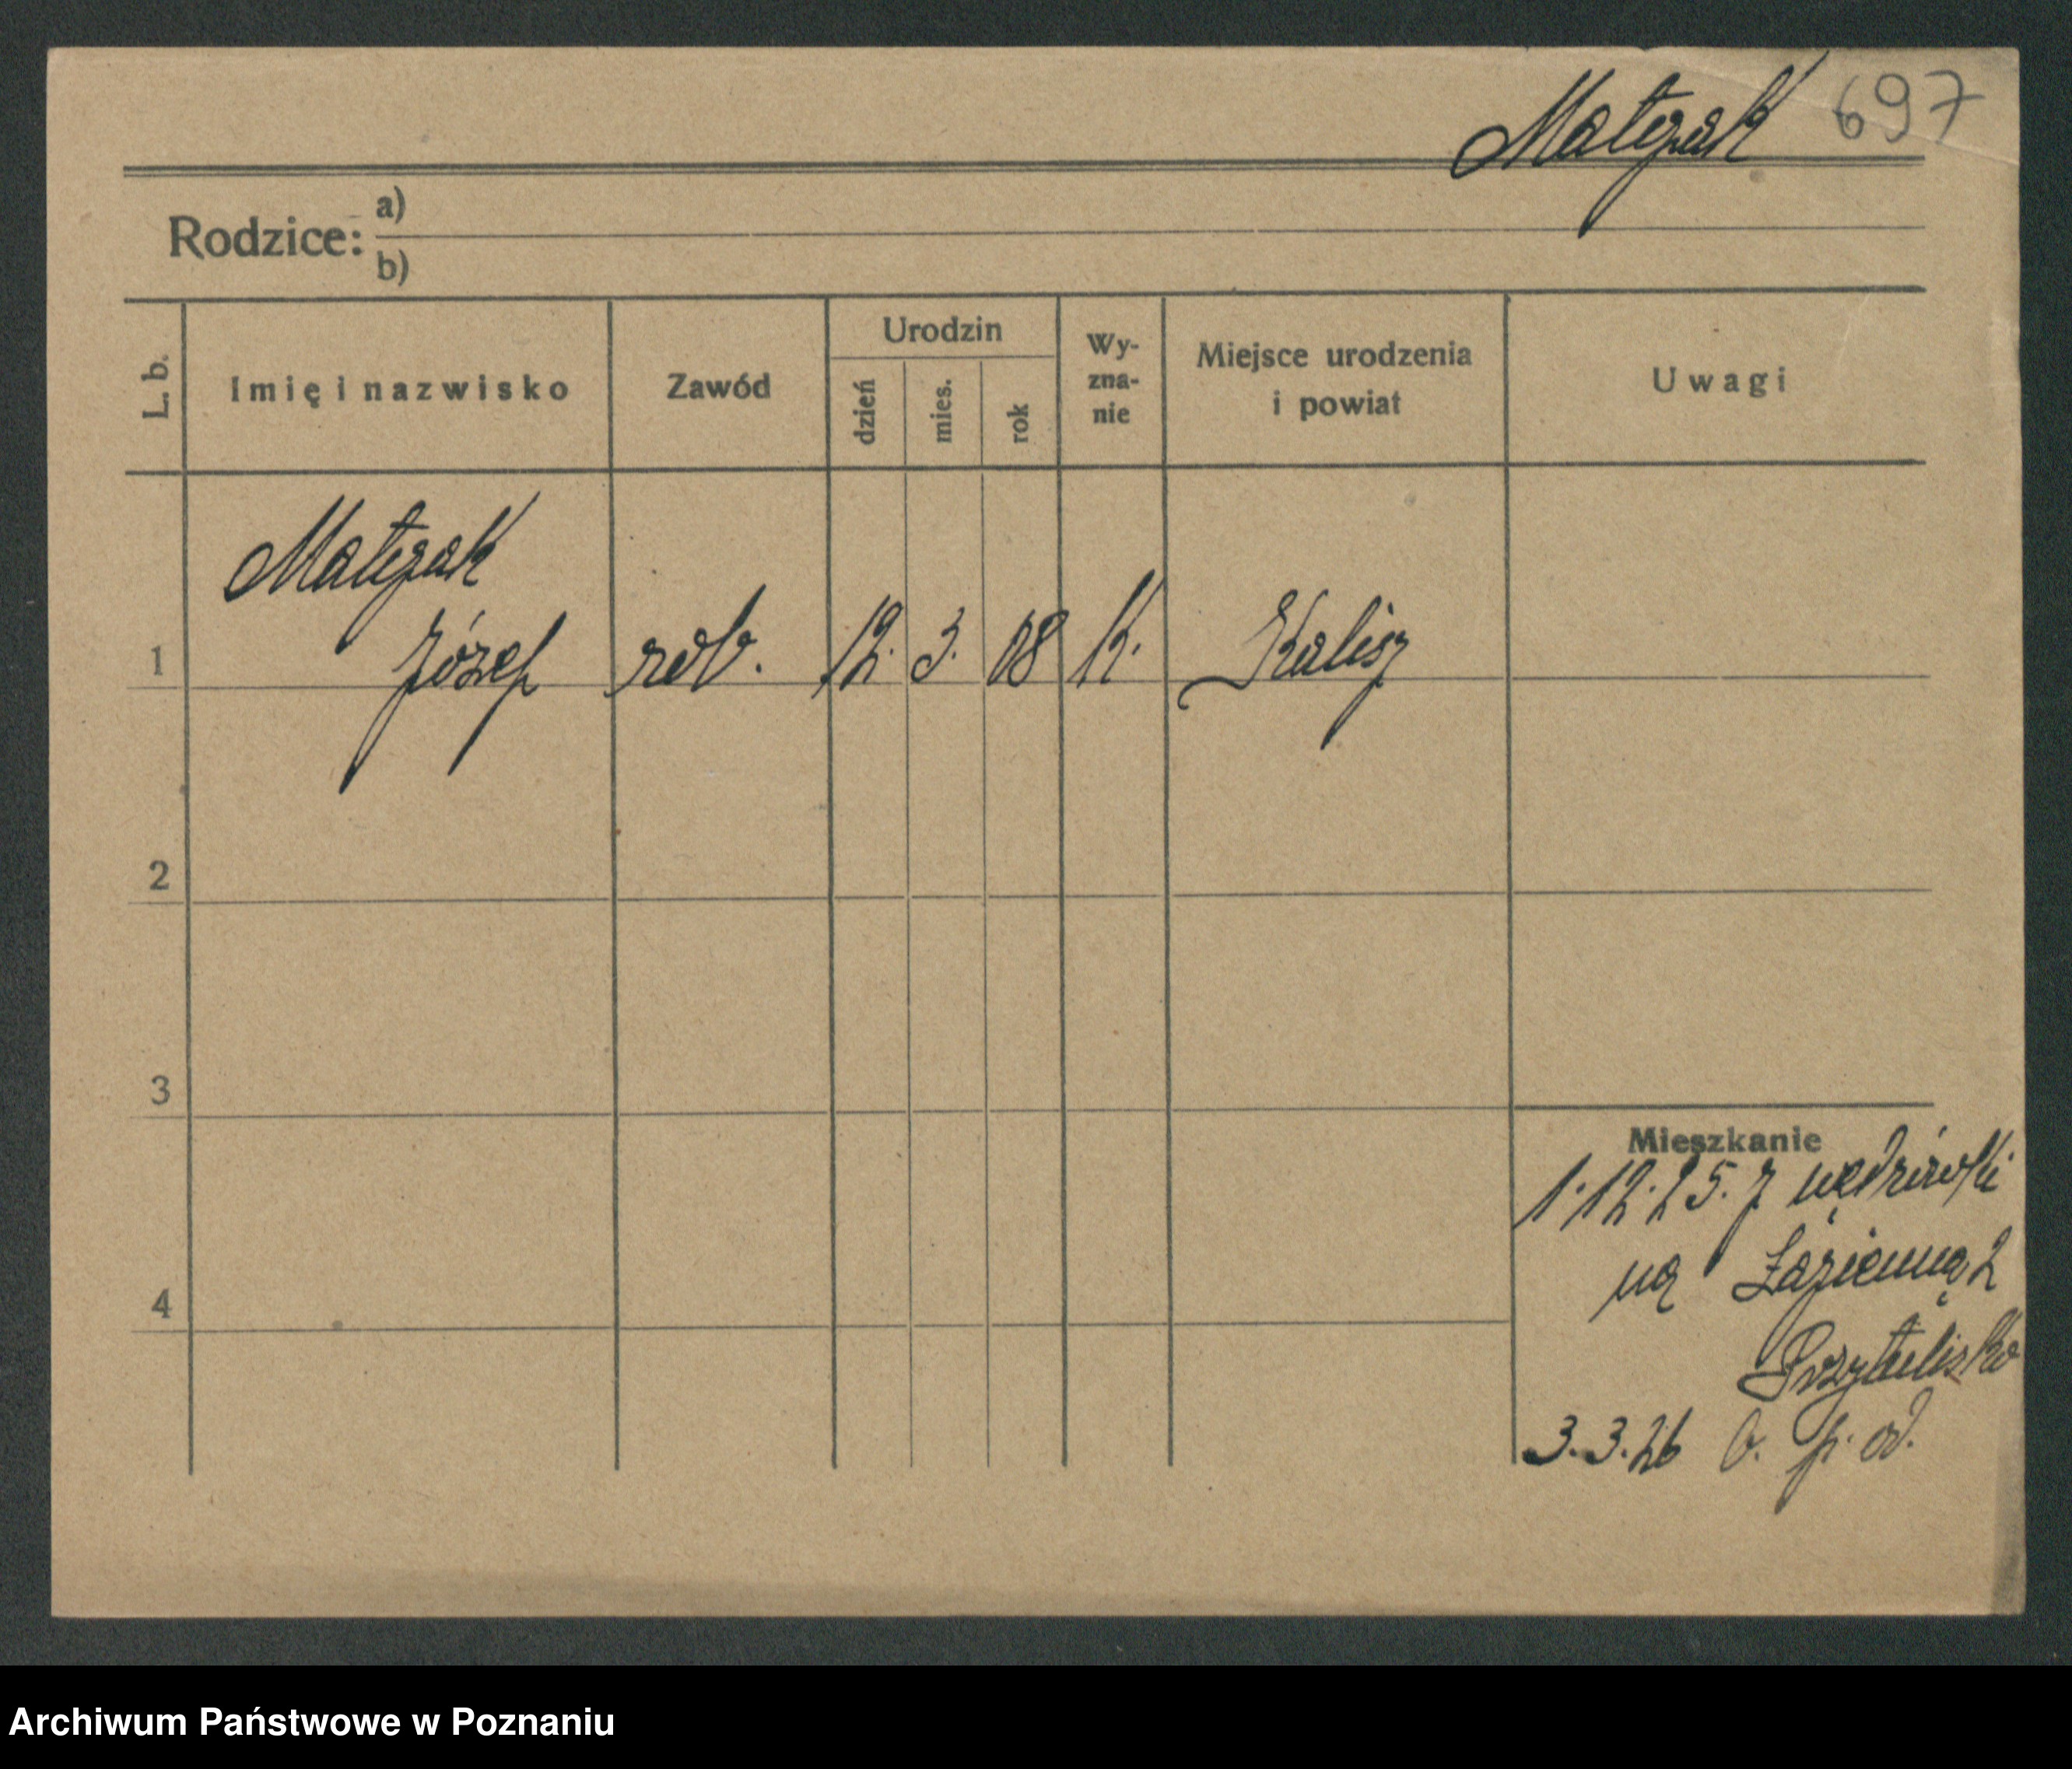 Matczak 697
Rodzice: a)
b)
L. b.
Imię i nazwisko
Zawód
Urodzin
dzień
mies.
rok
Wy-
zna-
nie
Miejsce urodzenia
i powiat
Uwagi
Matczak
1 Józef rob. 12. 3. 08 K. Kalisz
2
3
4
Mieszkanie
1.12.25. z wędrówki
na Łazienną 2
Przytulisko
3.3.26 b. p. od.
Archiwum Państwowe w Poznaniu